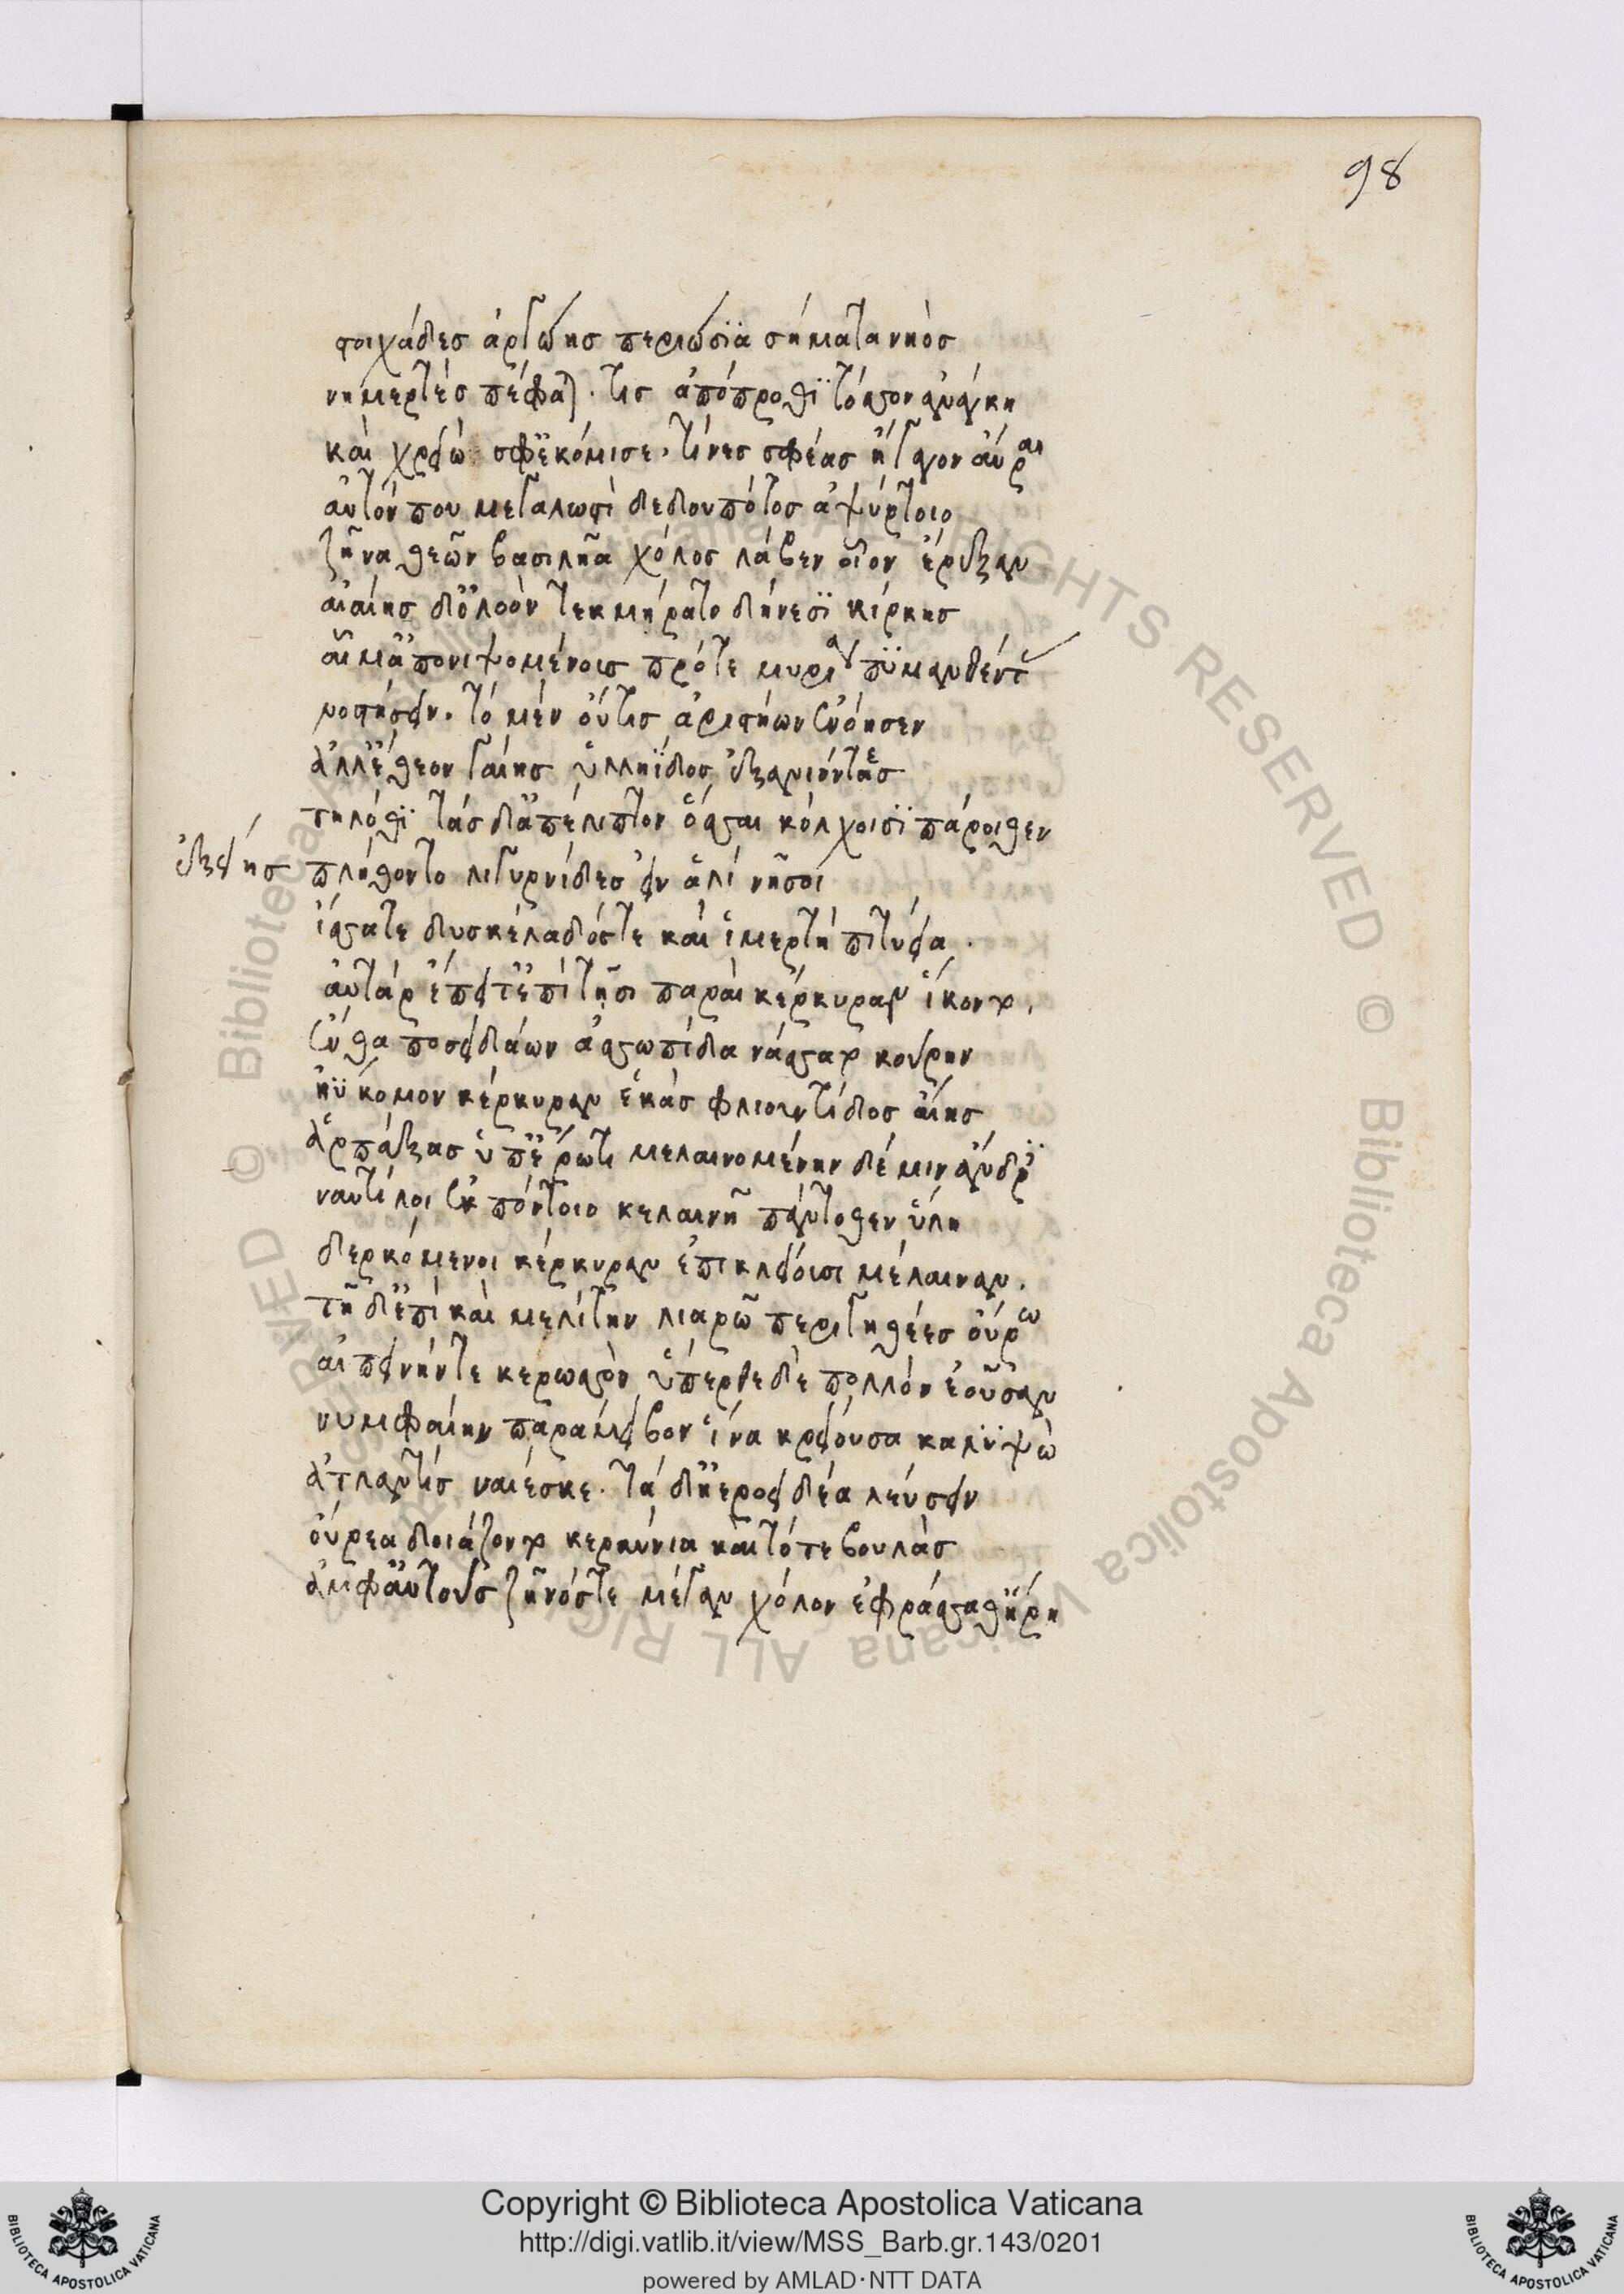 98
στοιχάδες ἀργώης περιώσϊα σήματα νηὸς
νημερτές πέφαται. τίς ἀπόπροθϊ τόσσον ἀνάγκη
καὶ χρειὼ σφ' ἐκόμισε. τίνες σφέας ἤγαγον αὖραι
αὐτόν που μεγαλωστὶ δεδουπότος ἀψύρτοιο
ζῆνα θεῶν βασιλῆα χόλος λάβεν οἷον ἔρεξαν
αἰαίης δ' ὀλοὸν τεκμήρατο δήνεσϊ κίρκης
αἷμ' ἀπονιψομένους πρό τε μυρία πημανθέντας
νοστήσειν. τὸ μὲν οὔτις ἀριστήων ἐνόησεν
ἀλλ' ἔθεον γαίης ὑλληΐδος ἐξανιόντες
τηλόθϊ τὰς δ' ἀπέλιπτον ὅσσαι κόλχοισϊ πάροιθεν
ἑξείης πλήθοντο λιγυρνίδες εἰν ἁλὶ νῆσοι
ἴσσα τε δυσκέλαδός τε καὶ ἱμερτὴ πιτύεια.
αὐτὰρ ἔπειτ' ἐπὶ τῇσι παραὶ κέρκυραν ἵκοντο,
ἔνθα ποσειδάων ἀσσωπίδα νάσσατο κούρην
ἠΰκομον κέρκυραν ἑκὰς φλιουντίδος αἴης
ἁρπάξας ὑπ' ἔρωτι μελαινομένην δέ μιν ἄνδρες
ναυτίλοι ἐκ πόντοιο κελαινῇ πάντοθεν ὕλῃ
δερκόμενοι κέρκυραν ἐπικλείουσι μέλαιναν.
τῇ δ' ἐπὶ καὶ μελίτην λιαρῷ περιγηθέες οὔρῳ
αἰπεινήν τε κερωσσὸν ὕπερθε δὲ πολλὸν ἐοῦσαν
νυμφαίην παράμειβον ἵνα κρείουσα καλυψὼ
ἀτλαντὶς ναίεσκε. τὰ δ' ἠεροειδέα λεύσειν
οὔρεα δοιάζοντο κεραύνια καὶ τότε βουλὰς
ἀμφ' αὐτοῖς ζηνός τε μέγαν χόλον ἐφράσσαθ' ἥρη
Copyright © Biblioteca Apostolica Vaticana
http://digi.vatlib.it/view/MSS_Barb.gr.143/0201
powered by AMLAD·NTT DATA